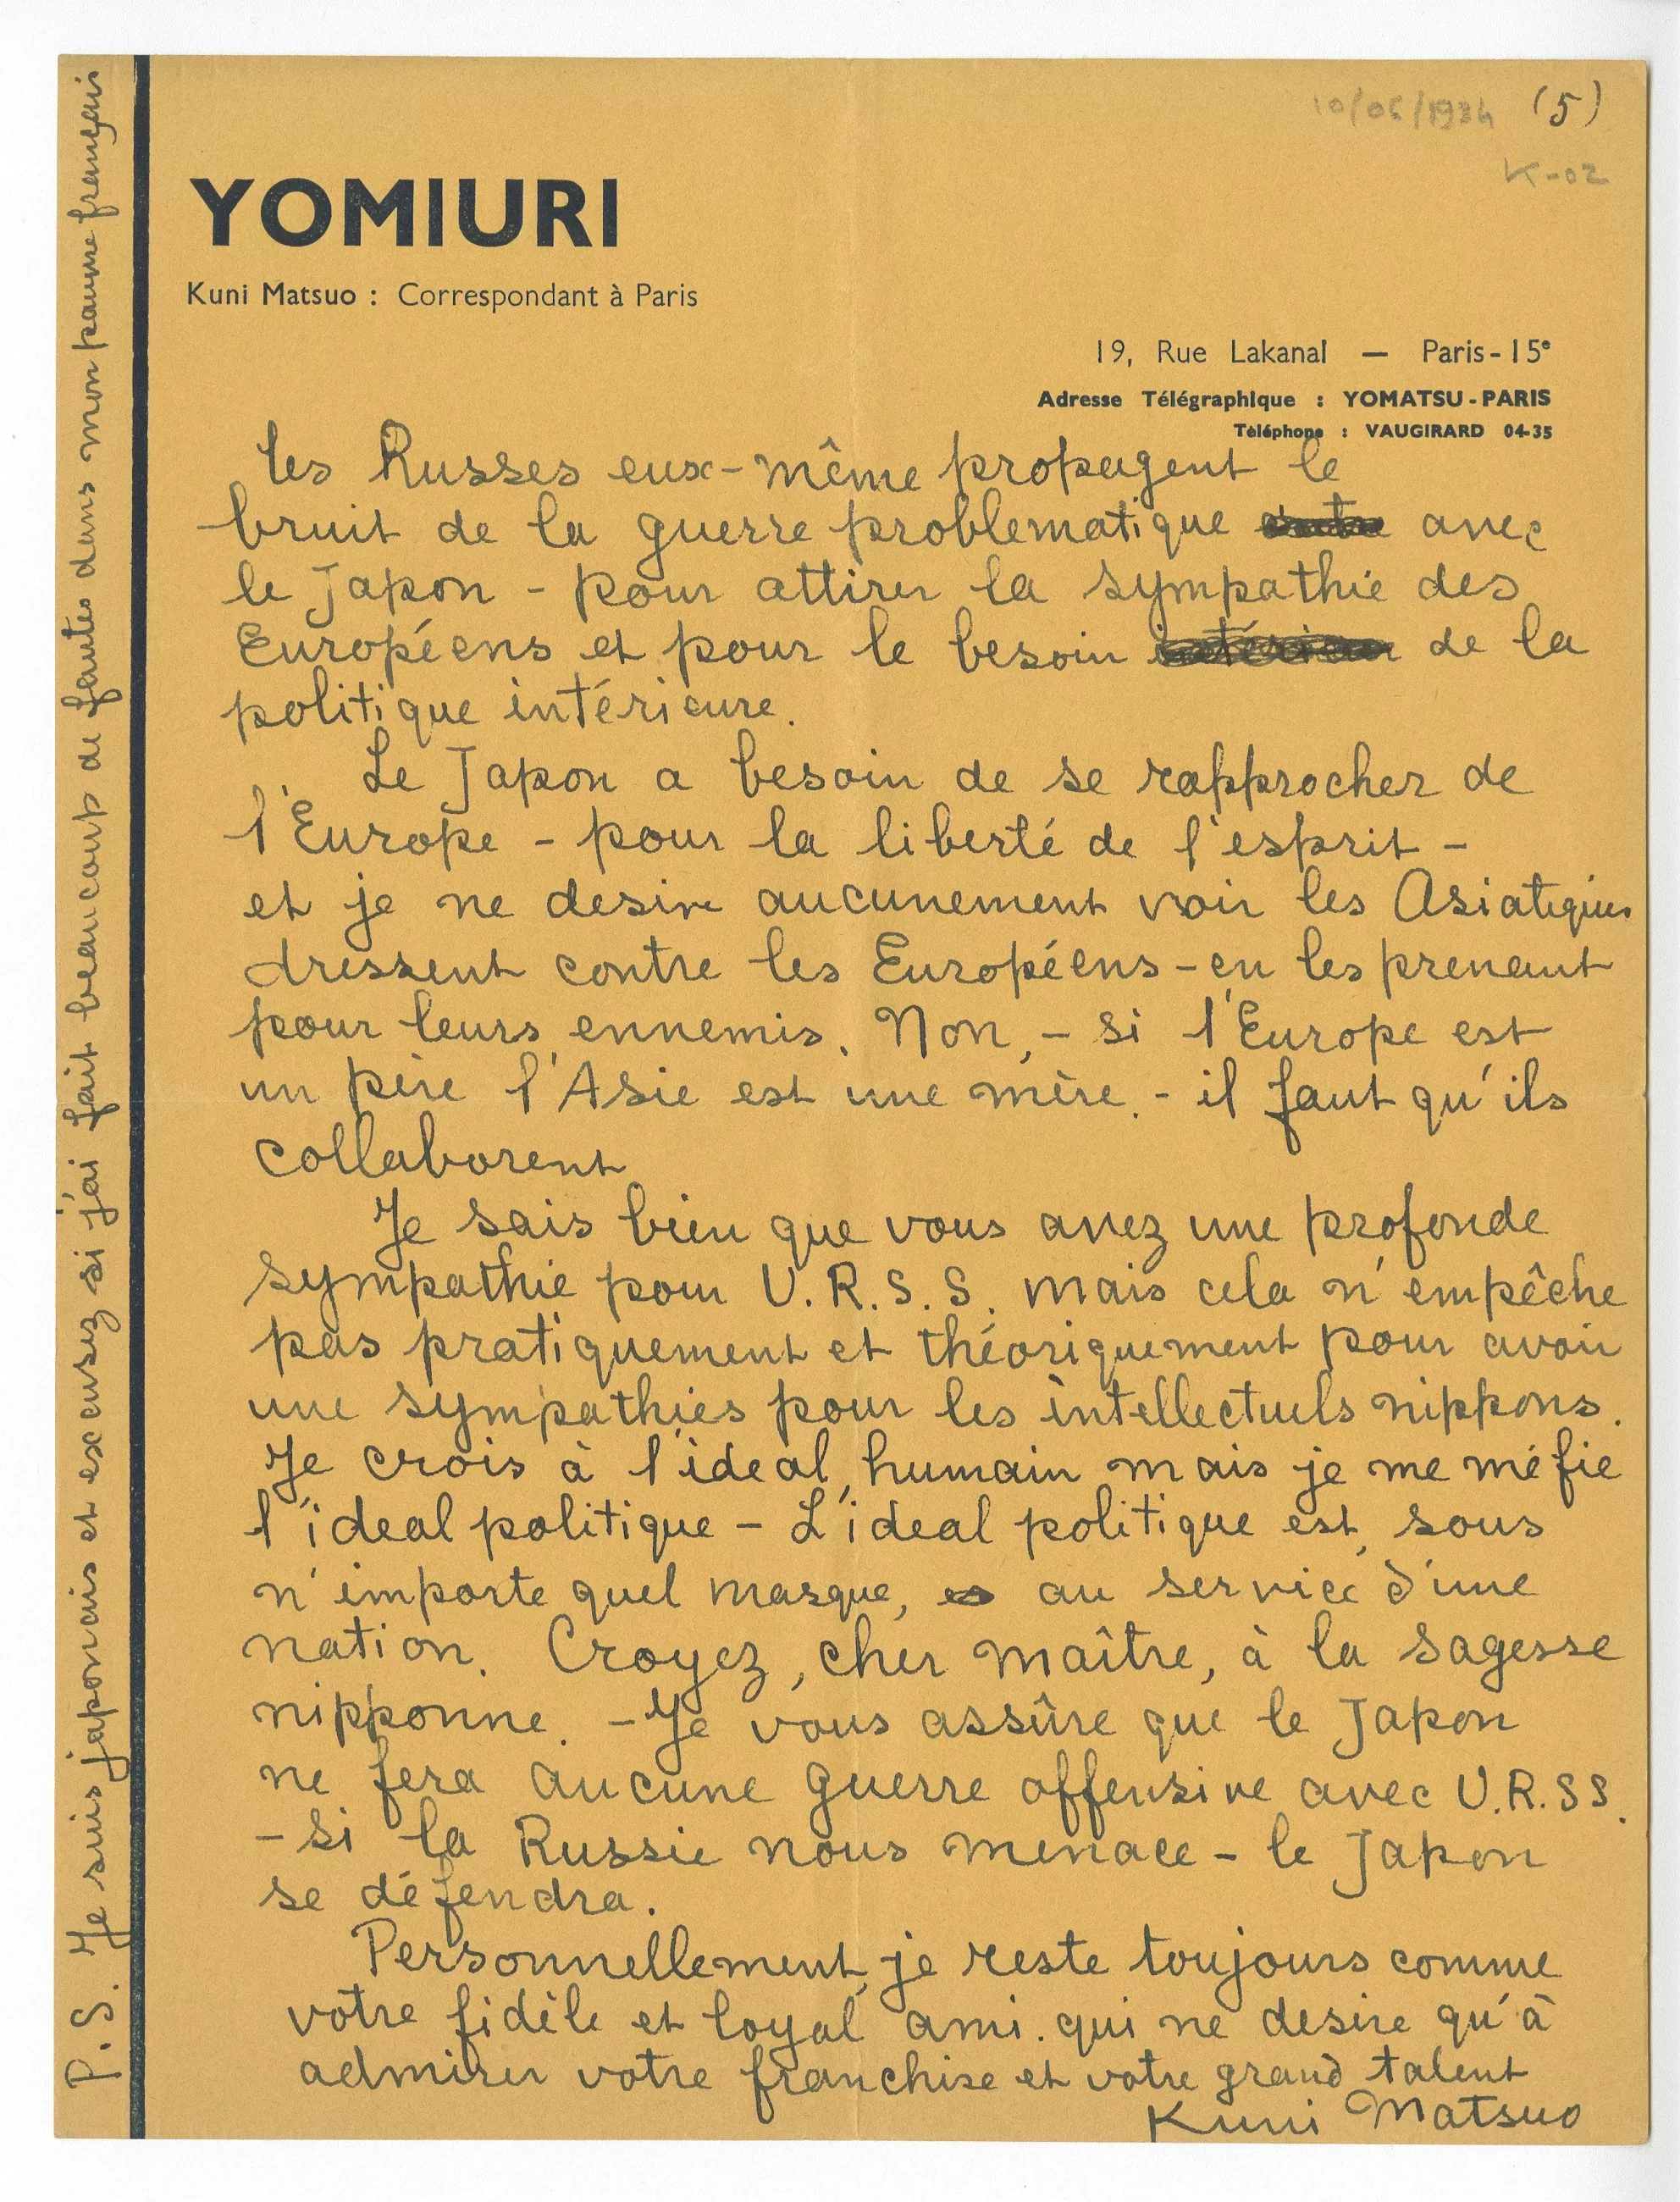 10/06/1934 (5)
K-02
YOMIURI
Kuni Matsuo : Correspondant à Paris
19, Rue Lakanal — Paris-15e
Adresse Télégraphique : YOMATSU-PARIS
Téléphone : VAUGIRARD 04-35
Les Russes eux-même propagent le
bruit de la guerre problematique avec
le Japon - pour attirer la sympathie des
Européens et pour le besoin de la
politique intérieure.
Le Japon a besoin de se rapprocher de
l'Europe - pour la liberté de l'esprit -
et je ne desire aucunement voir les Asiatiques
dressent contre les Européens - en les prenant
pour leurs ennemis. Non, - si l'Europe est
un père l'Asie est une mère. - il faut qu'ils
collaborent
Je sais bien que vous avez une profonde
sympathie pour U.R.S.S. mais cela n'empêche
pas pratiquement et théoriquement pour avoir
une sympathies pour les intellectuels nippons.
Je crois à l'ideal humain mais je me méfie
l'ideal politique - L'ideal politique est, sous
n'importe quel masque, au service d'une
nation. Croyez, cher maître, à la sagesse
nipponne. - Je vous assûre que le Japon
ne fera aucune guerre offensive avec U.R.SS.
- si la Russie nous menace - le Japon
se défendra.
Personnellement, je reste toujours comme
votre fidèle et loyal ami. qui ne desire qu'à
admirer votre franchise et votre grand talent
Kuni Matsuo
P.S. Je suis japonais et excusez si j'ai fait beaucoup de fautes dans mon pauvre français